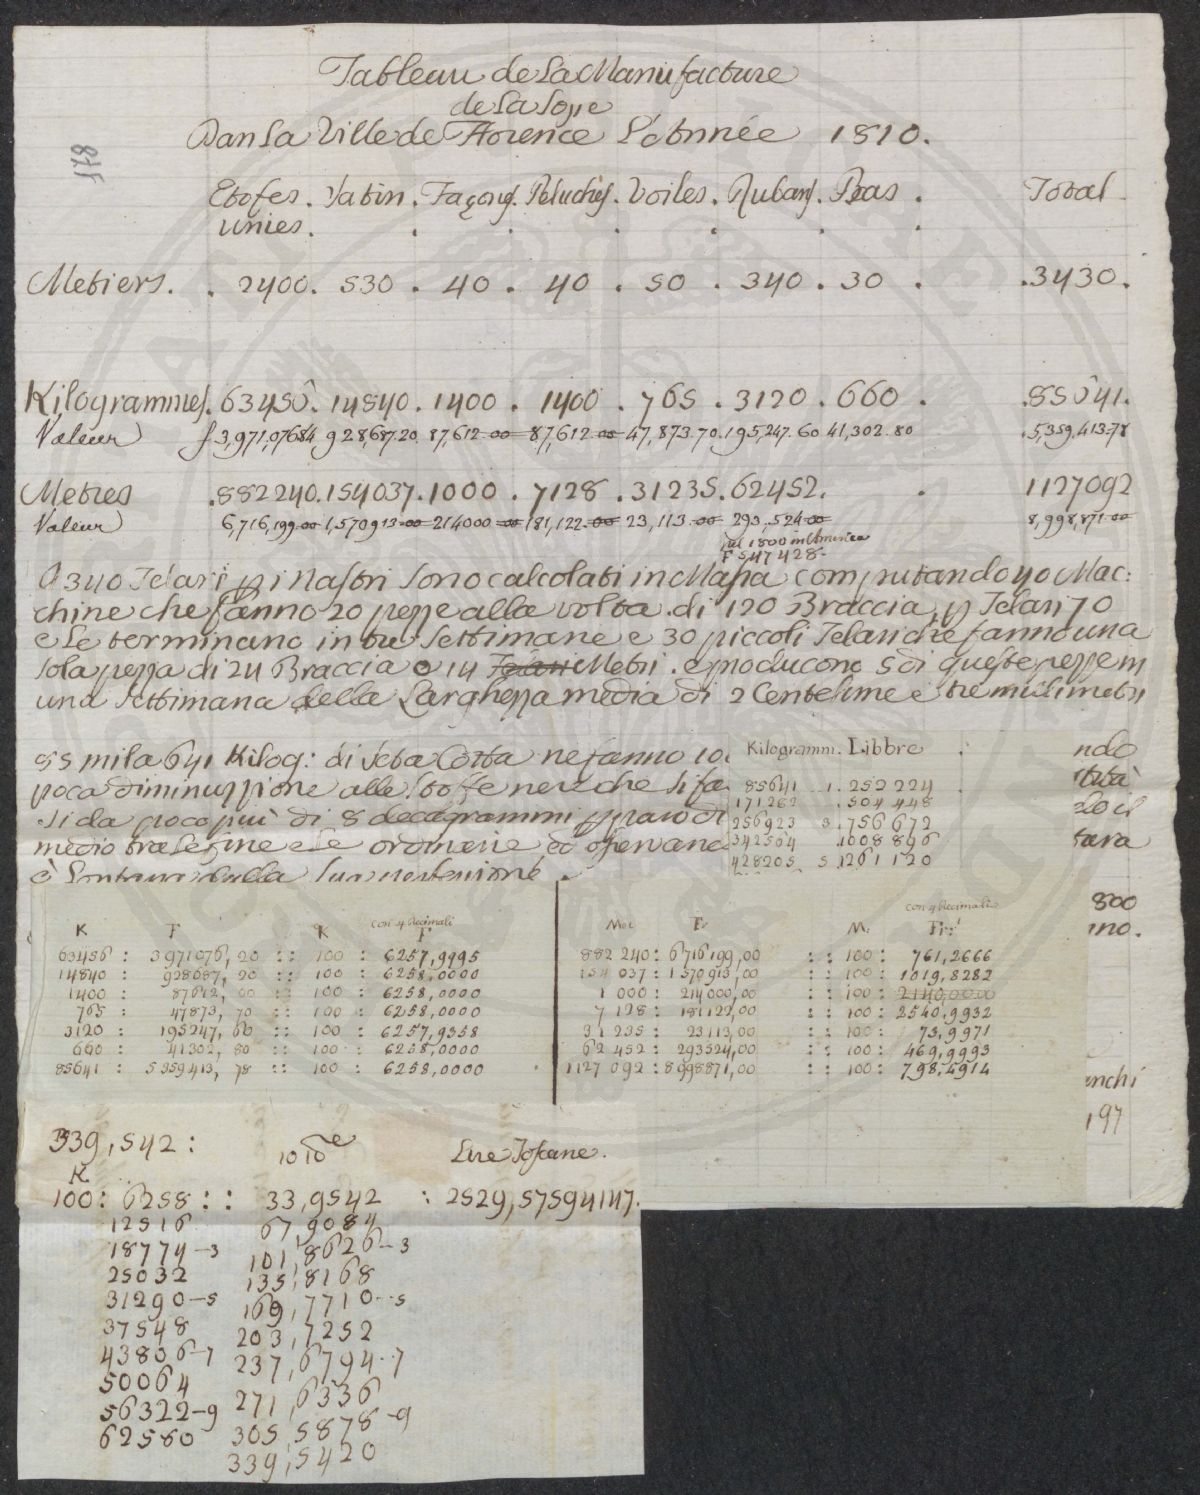 Tableau de La Manufacture
de La Soye
Dans La Ville de Florence L'Année 1810.
878
Etofes unies. Satin. Façons. Peluches. Voiles. Rubans. Bas. Total
Metiers. 2400. 530. 40. 40. 50. 340. 30. 3430.
Kilogrammes. 63456. 14840. 1400. 1400. 765. 3120. 660. 85641.
Valeur f 3,971,076 84 928,687.20 87,612-00 87,612-00 47,873.70 195,247.60 41,302.80 5,359,413-78
Metres 882240. 154037. 1000. 7128. 31235. 62452. 1127092
Valeur 6,716,199-00 1,570913-00 214000-00 181,122-00 23,113-00 293,524-00 8,998,871-00
nel 1800 in
F 547428-
O 340 Telari pi Nastri sono calcolati in Massa computando 40 Mac:
chine che fanno 20 pezze alla volta di 120 Braccia, p Telari 70
e Le terminano in tre Settimane e 30 piccoli Telari che fanno una
sola pezza di 24 Braccia o 14 Metri. e producono 5 di queste pezze in
una Settimana della Larghezza media di 2 Centesime e tre milimetri
85 mila 641 Kilog: di Seta Cotta ne fanno 10.
poca diminuzzione alle Stoffe nere che si fa
si da poco più di 8 decagrammi
medio tra Le fine e Le ordinarie ed
è Lontano dalla sua
ndo
tara
800
ino.
anchi
197
Kilogrammi. Libbre
85641 1. 252224
171282 . 504448
256923 3. 756672
342564 1008896
428205 5 1261120
con 4 decimali
K F K F
63456 : 3971076, 20 :: 100 : 6257,9995
14840 : 928687, 20 :: 100 : 6258,0000
1400 : 87612, 00 :: 100 : 6258,0000
765 : 47873, 70 :: 100 : 6258,0000
3120 : 195247, 60 :: 100 : 6257,9358
660 : 41302, 80 :: 100 : 6258,0000
85641 : 5359413, 78 :: 100 : 6258,0000
con 4 decimali
Met Fr M: Fr:
882 240 : 6716199,00 :: 100 : 761,2666
154 037 : 1570913,00 :: 100 : 1019,8282
1 000 : 214000,00 :: 100 : 2140,0000
7 128 : 181122,00 :: 100 : 2540,9932
31 235 : 23113,00 :: 100 : 73,9971
62 452 : 293524,00 :: 100 : 469,9993
1127 092 : 8998871,00 :: 100 : 798,4914
339,542 : 10 10me Lire Toscane.
K
100 : 6258 :: 33,9542 : 2529,57594147.
12516 67,9084
18774-3 101,8626-3
25032 135,8168
31290-5 169,7710-5
37548 203,7252
43806-7 237,6794-7
50064 271,6336
56322-9 305,5878-9
62580 339,5420